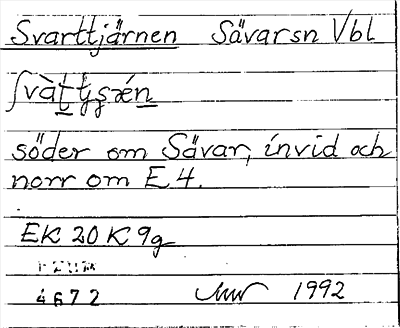 Svarttjärnen Sävarsn Vbl
söder om Sävar, invid och
norr om E4.
EK 20K9g
4672 1992